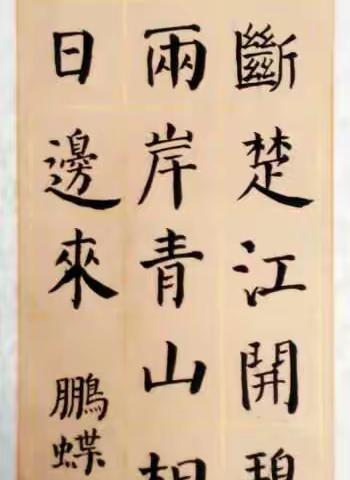 斷楚江開碧
兩岸青山相
日邊來
鵬蝶